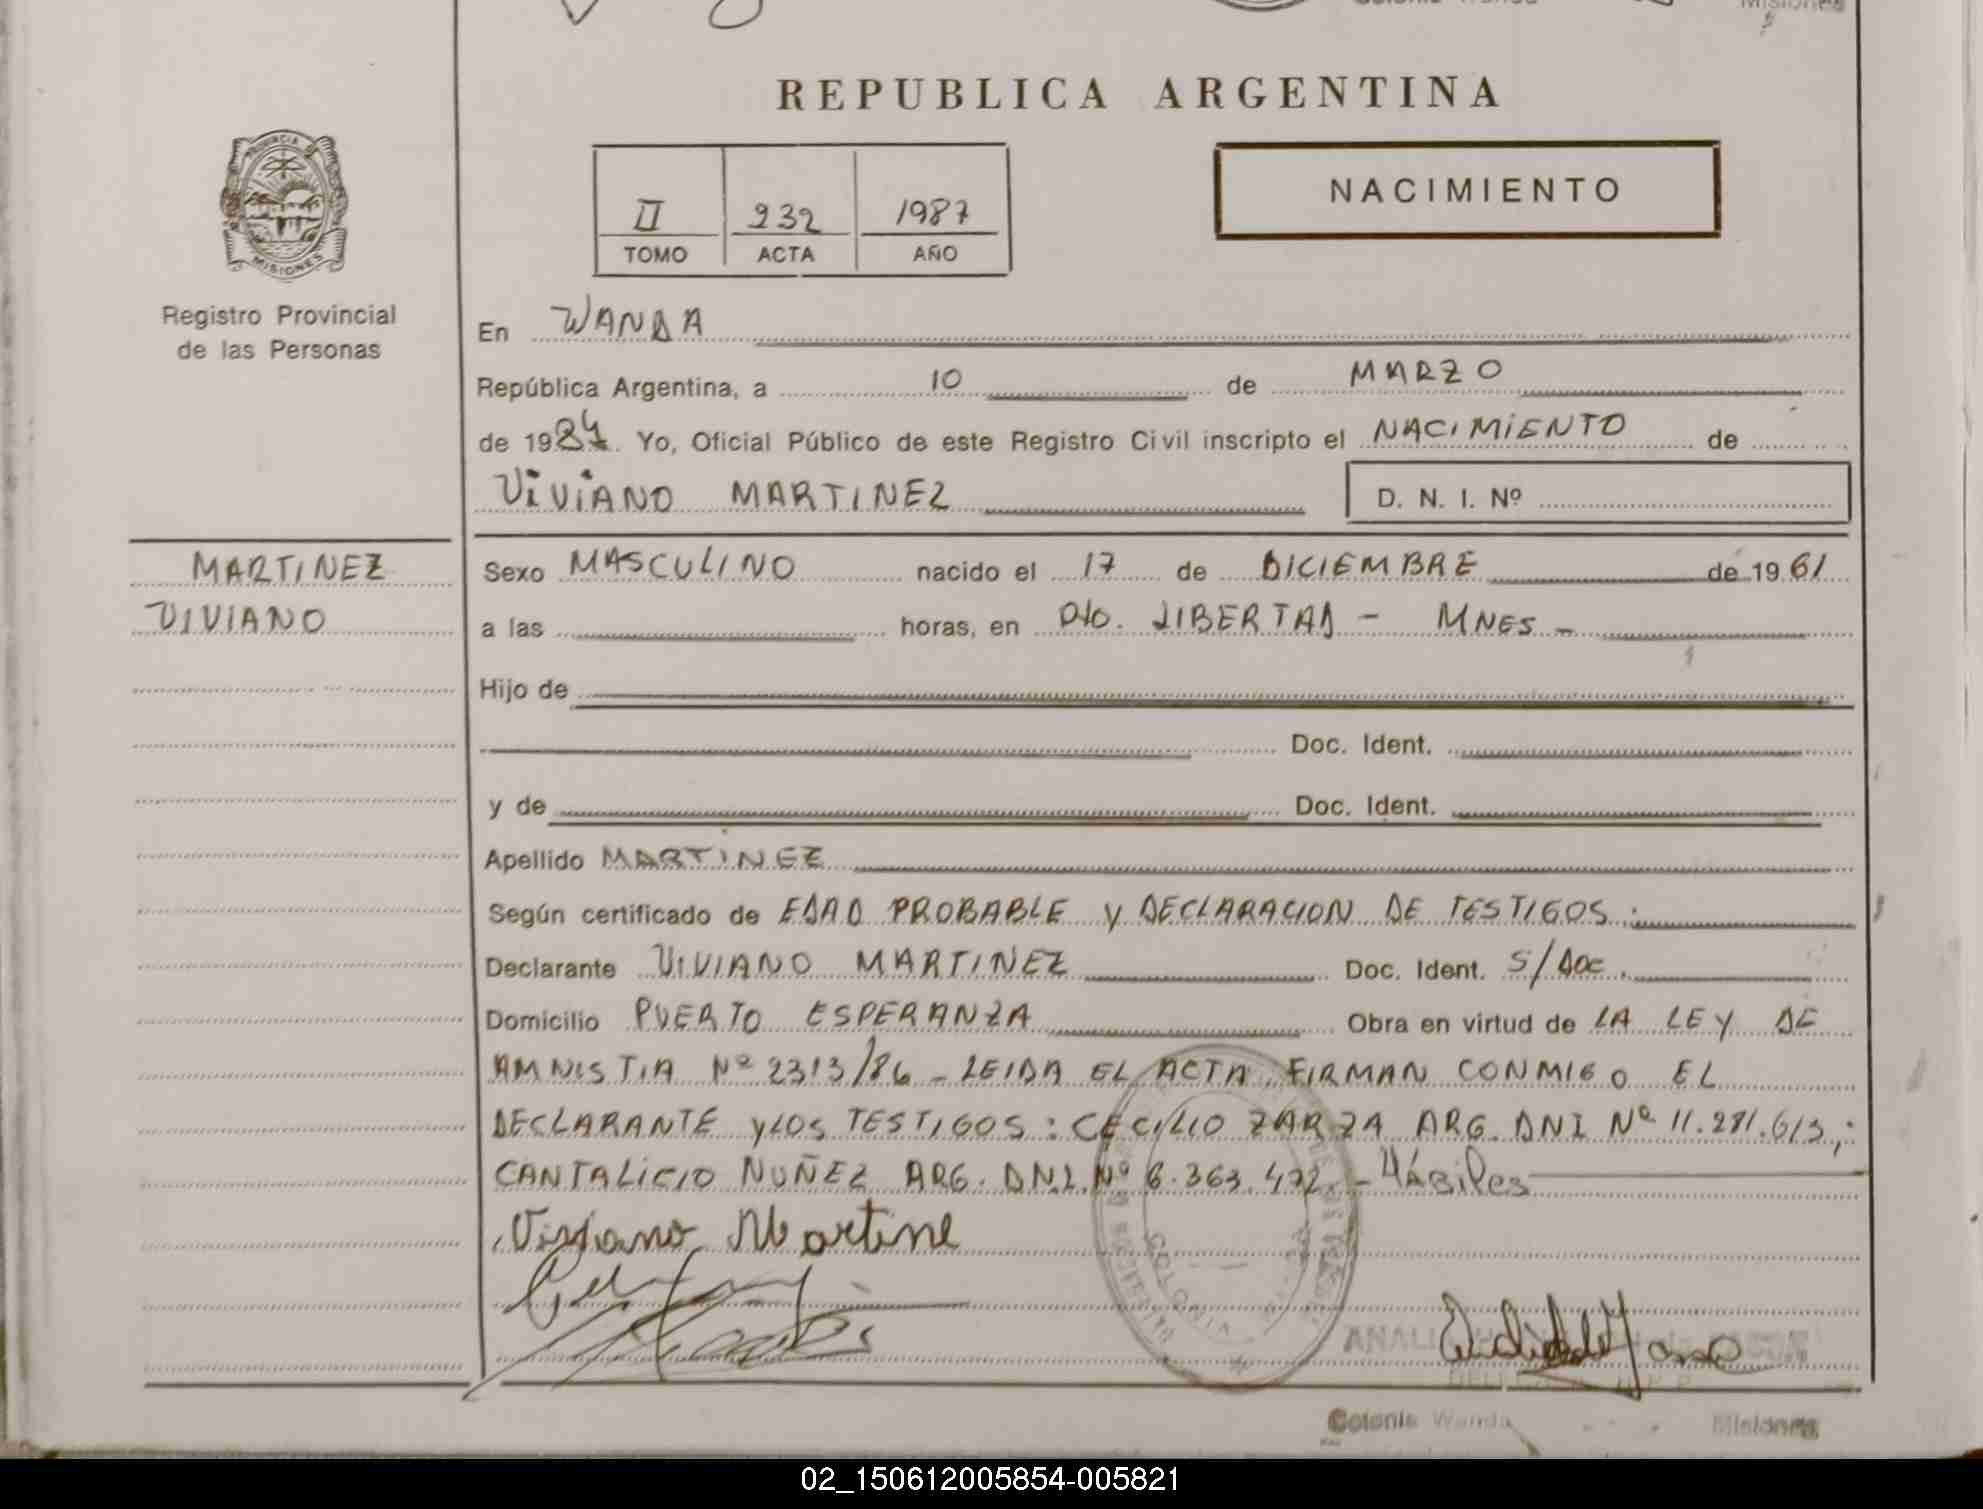 Misiones
REPUBLICA ARGENTINA
PROVINCIA DE
MISIONES
Registro Provincial
de las Personas
II 232 1987
TOMO ACTA AÑO
NACIMIENTO
En WANDA
República Argentina, a 10 de MARZO
de 1987. Yo, Oficial Público de este Registro Civil inscripto el NACIMIENTO de
VIVIANO MARTINEZ D. N. I. Nº
MARTINEZ
VIVIANO
Sexo MASCULINO nacido el 17 de DICIEMBRE de 1961
a las horas, en Pto. LIBERTAD - MNES -
Hijo de
Doc. Ident.
y de Doc. Ident.
Apellido MARTINEZ
Según certificado de EDAD PROBABLE y DECLARACION DE TESTIGOS:
Declarante VIVIANO MARTINEZ Doc. Ident. S/Doc.
Domicilio PUERTO ESPERANZA Obra en virtud de LA LEY DE
AMNISTIA Nº 2313/86 - LEIDA EL ACTA, FIRMAN CONMIGO EL
DECLARANTE y LOS TESTIGOS: CECILIO ZARZA ARG. DNI Nº 11.281.613,;
CANTALICIO NUÑEZ ARG. DNI Nº 6.363.472 - Hábiles
Viviano Martine
COLONIA
Colonia Wanda Misiones
02_150612005854-005821